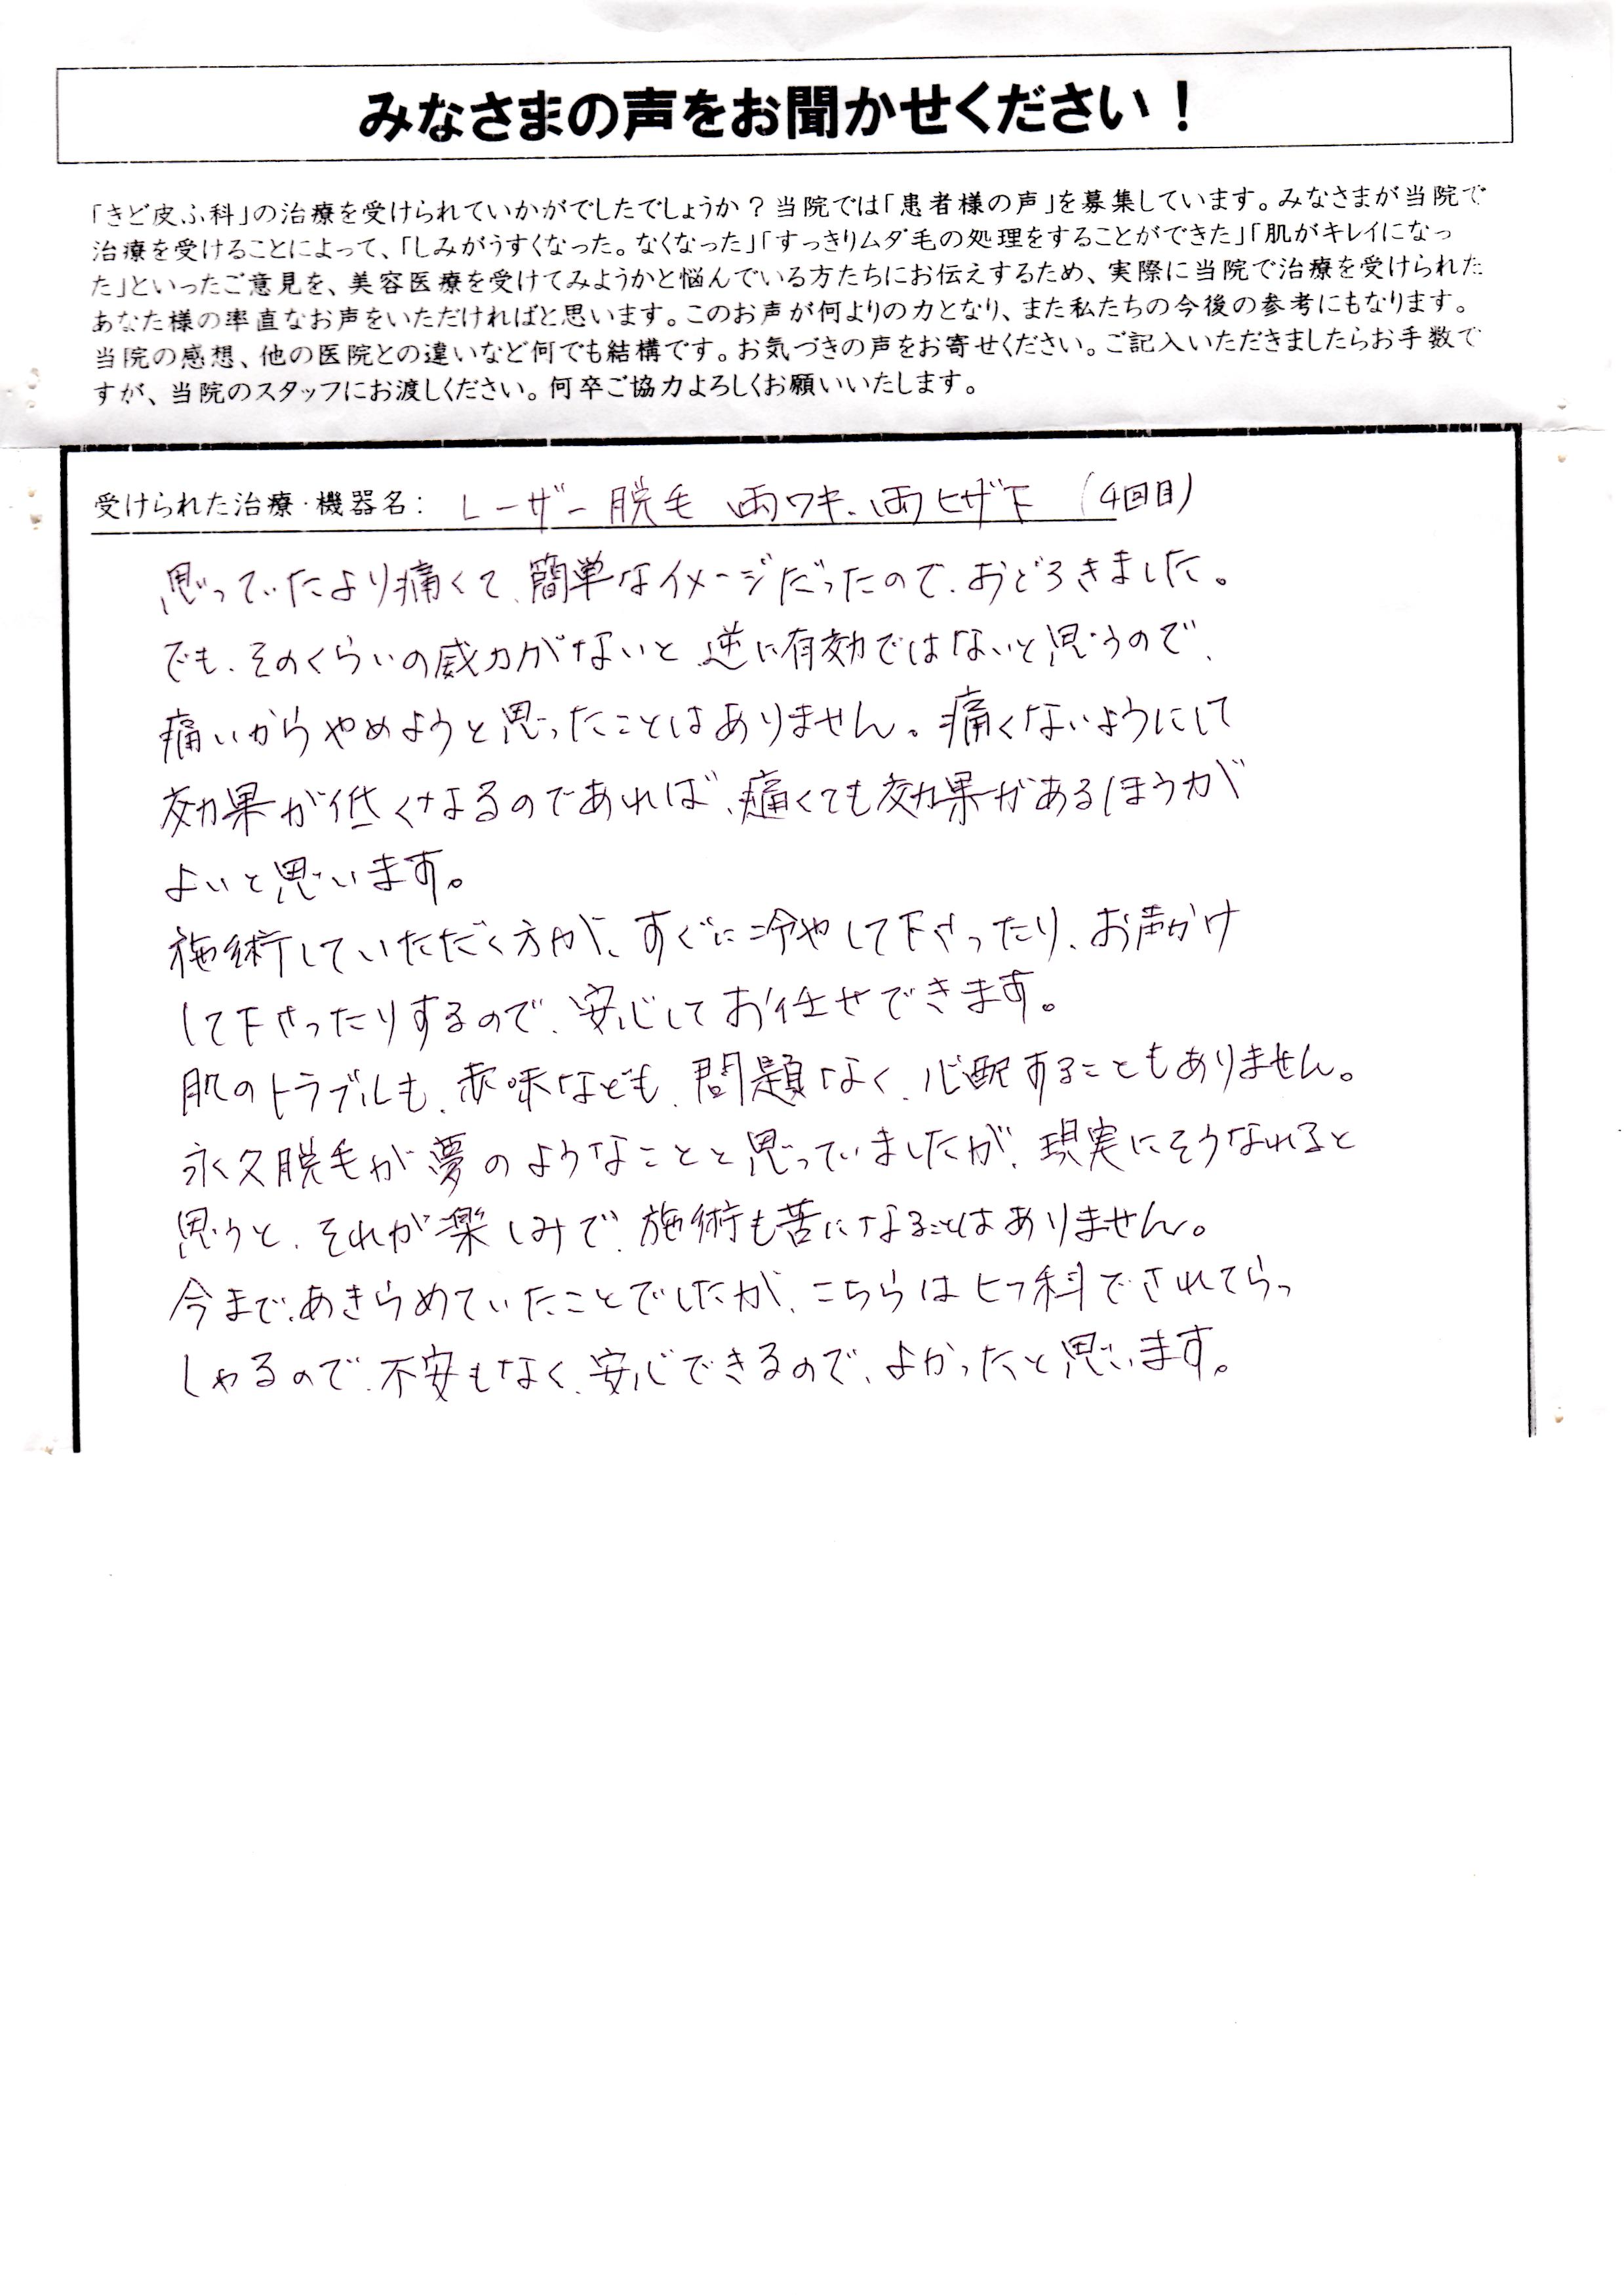 みなさまの声をお聞かせください！
「きど皮ふ科」の治療を受けられていかがでしたでしょうか？当院では「患者様の声」を募集しています。みなさまが当院で
治療を受けることによって、「しみがうすくなった。なくなった」「すっきりムダ毛の処理をすることができた」「肌がキレイになっ
た」といったご意見を、美容医療を受けてみようかと悩んでいる方たちにお伝えするため、実際に当院で治療を受けられた
あなた様の率直なお声をいただければと思います。このお声が何よりの力となり、また私たちの今後の参考にもなります。
当院の感想、他の医院との違いなど何でも結構です。お気づきの声をお寄せください。ご記入いただきましたらお手数で
すが、当院のスタッフにお渡しください。何卒ご協力よろしくお願いいたします。
受けられた治療・機器名：レーザー脱毛 両ワキ、両ヒザ下（4回目）
思っていたより痛くて、簡単なイメージだったので、おどろきました。
でも、そのくらいの威力がないと逆に有効ではないと思うので、
痛いからやめようと思ったことはありません。痛くないようにして
効果が低くなるのであれば、痛くても効果があるほうが
よいと思います。
施術していただく方が、すぐに冷やして下さったり、お声かけ
して下さったりするので、安心してお任せできます。
肌のトラブルも、赤味なども、問題なく、心配することもありません。
永久脱毛が夢のようなことと思っていましたが、現実にそうなれると
思うと、それが楽しみで、施術も苦になることはありません。
今まで、あきらめていたことでしたが、こちらはヒフ科でされてらっ
しゃるので、不安もなく、安心できるので、よかったと思います。